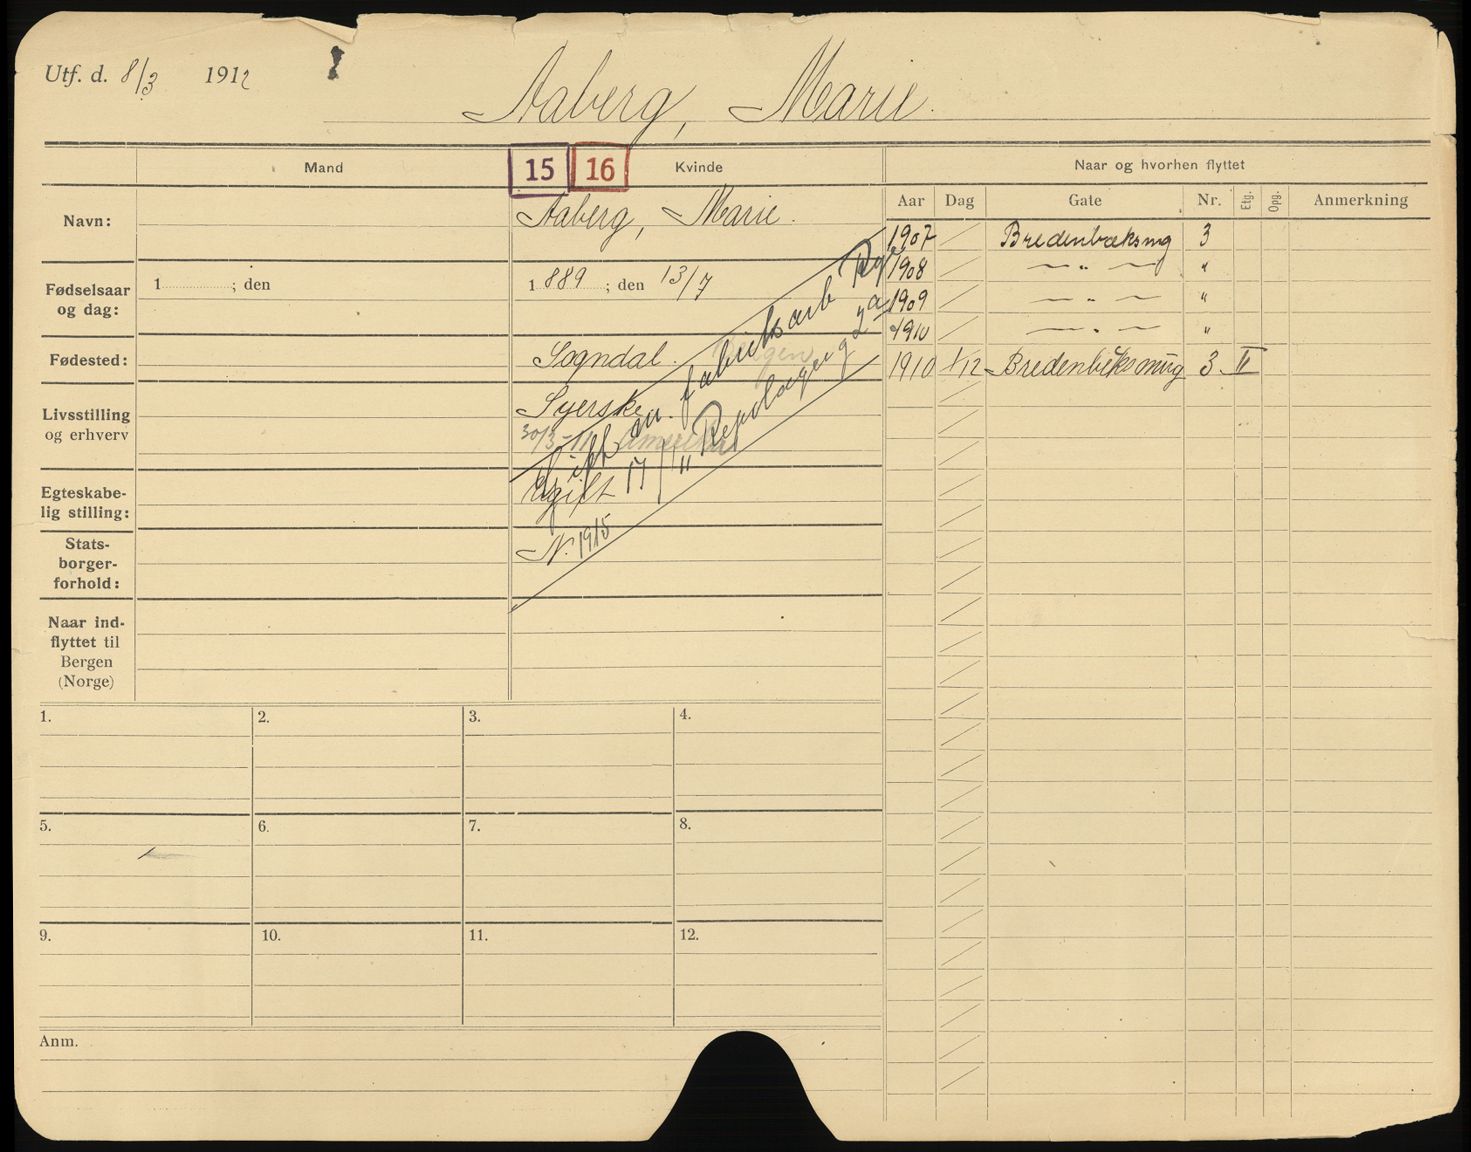 Utf. d. 8/3 1912
Aaberg, Marie.
Mand
15 16
Kvinde
Naar og hvorhen flyttet
Aar Dag Gate Nr. Etg. Opg. Anmerkning
Navn:
Aaberg, Marie.
1907 Bredenbæksmg 3
1908 — „ — „
1909 — „ — „
1910 — „ — „
1910 1/12 Bredenbeksmug 3 II
Fødselsaar
og dag:
1 ; den
1889 ; den 13/7
Fødested:
Sogndal. Bergen
Livsstilling
og erhverv
Syerske
30/3-11
Egteskabe-
lig stilling:
Ugift
Gift m. fabriksarb
17/11
2a
Stats-
borger-
forhold:
N. 1915
Naar ind-
flyttet til
Bergen
(Norge)
1. 2. 3. 4.
5. 6. 7. 8.
9. 10. 11. 12.
Anm.